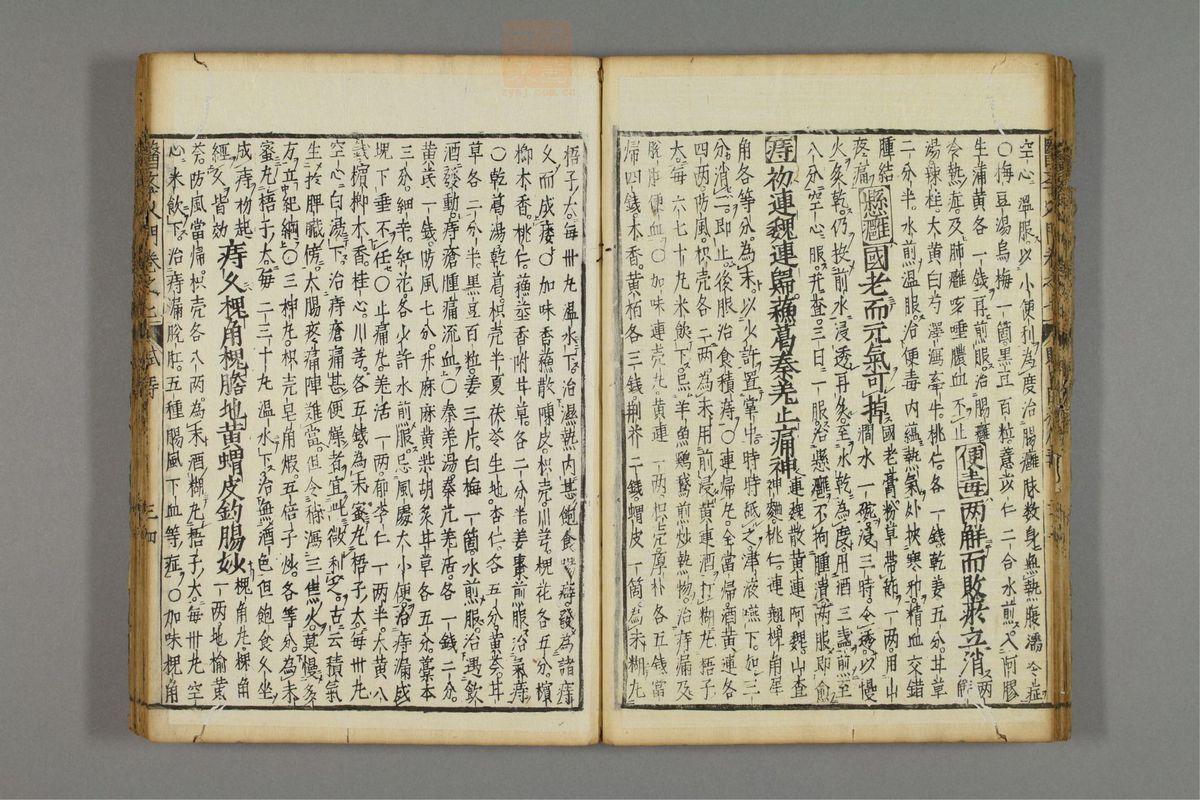 空心溫服以小便利為度治腸癰脉數身無熱腹濡
〇梅豆湯烏梅一箇黑豆百粒薏苡仁二合水煎入阿膠
生蒲黃各一錢再煎服治腸癰便毒两解而敗瘀立消
冷熱證及肺癰咳唾膿血不止
湯綠柱大黃白芍澤瀉牽牛桃仁各一錢乾姜五分甘草
二分半水煎溫服治便毒內蘊熱氣外挾寒邪精血交錯
腫結疼痛懸癰國老而元氣可掉國老膏粉草帶節一两用山澗水一碗浸三時令透以慢
火炙乾仍投前水浸透再炙至水乾為度用酒三盞煎至
入分空心服尤查三日一服治懸癰不狗腫潰两服即愈
痔初連魏連歸蘓葛秦羌止痛神連魏散黃連阿魏山查神麯桃仁連翹槐角犀
角各等分為末以少許置掌中時時砥之津液嚥下如三
分消二即止後服治食積痔〇連歸丸全當歸酒黃連各
四两防風枳壳各二两為末用前浸黃連酒打糊丸梧子
大每六七十丸米飲下忌羊魚鷄鵞煎炒熱物治痔漏及
脫肛便血〇加味連壳丸黃連一两枳壳厚朴各五錢當
歸四錢木香黃柏各三錢荆芥二錢蝟皮一箇為末糊丸
梧子大每卅丸溫水下治濕熱內甚飽食腸癖發為諸痔
久而成瘻〇加味香蘓散陳皮枳壳川芎槐花各五分檳
榔木香桃仁蘓莖香附甘草各二分半姜棗煎服治氣痔
〇乾葛湯乾葛枳壳半夏茯苓生地杏仁各五分黃芩甘
草各二分半黑豆百粒姜三片白梅一箇水煎服治遇飲
酒發動痔瘡腫痛流血〇秦羌湯秦艽羌活各一錢二分
黃芪一錢防風七分升麻麻黃柴胡炙甘草各五分藁本
三分細辛紅花各少許水煎服忌風處大小便治痔漏成
塊下垂不任〇止痛丸羌活一两郁李仁一两半大黃八
錢檳榔木香桂心川芎各五錢為末蜜丸梧子大每卅丸
空心白湯下治痔瘡痛甚便燥者宜此微利之古云積氣
生於脾臟傍大腸疼痛陣難當但令稀瀉三焦火莫慢多
方立紀綱〇三神丸枳壳皂角煆五倍子炒各等分為末
蜜丸梧子大每二三十丸溫水下治無酒色但飽食久坐
成痔初起經久皆効痔久槐角槐膽地黃蝟皮釣腸妙槐角丸槐角一两地榆黃
芩防風當歸枳壳各八两為末酒糊丸梧子大每卅丸空
心米飲下治痔漏脫肛五種腸風下血等症〇加味槐角